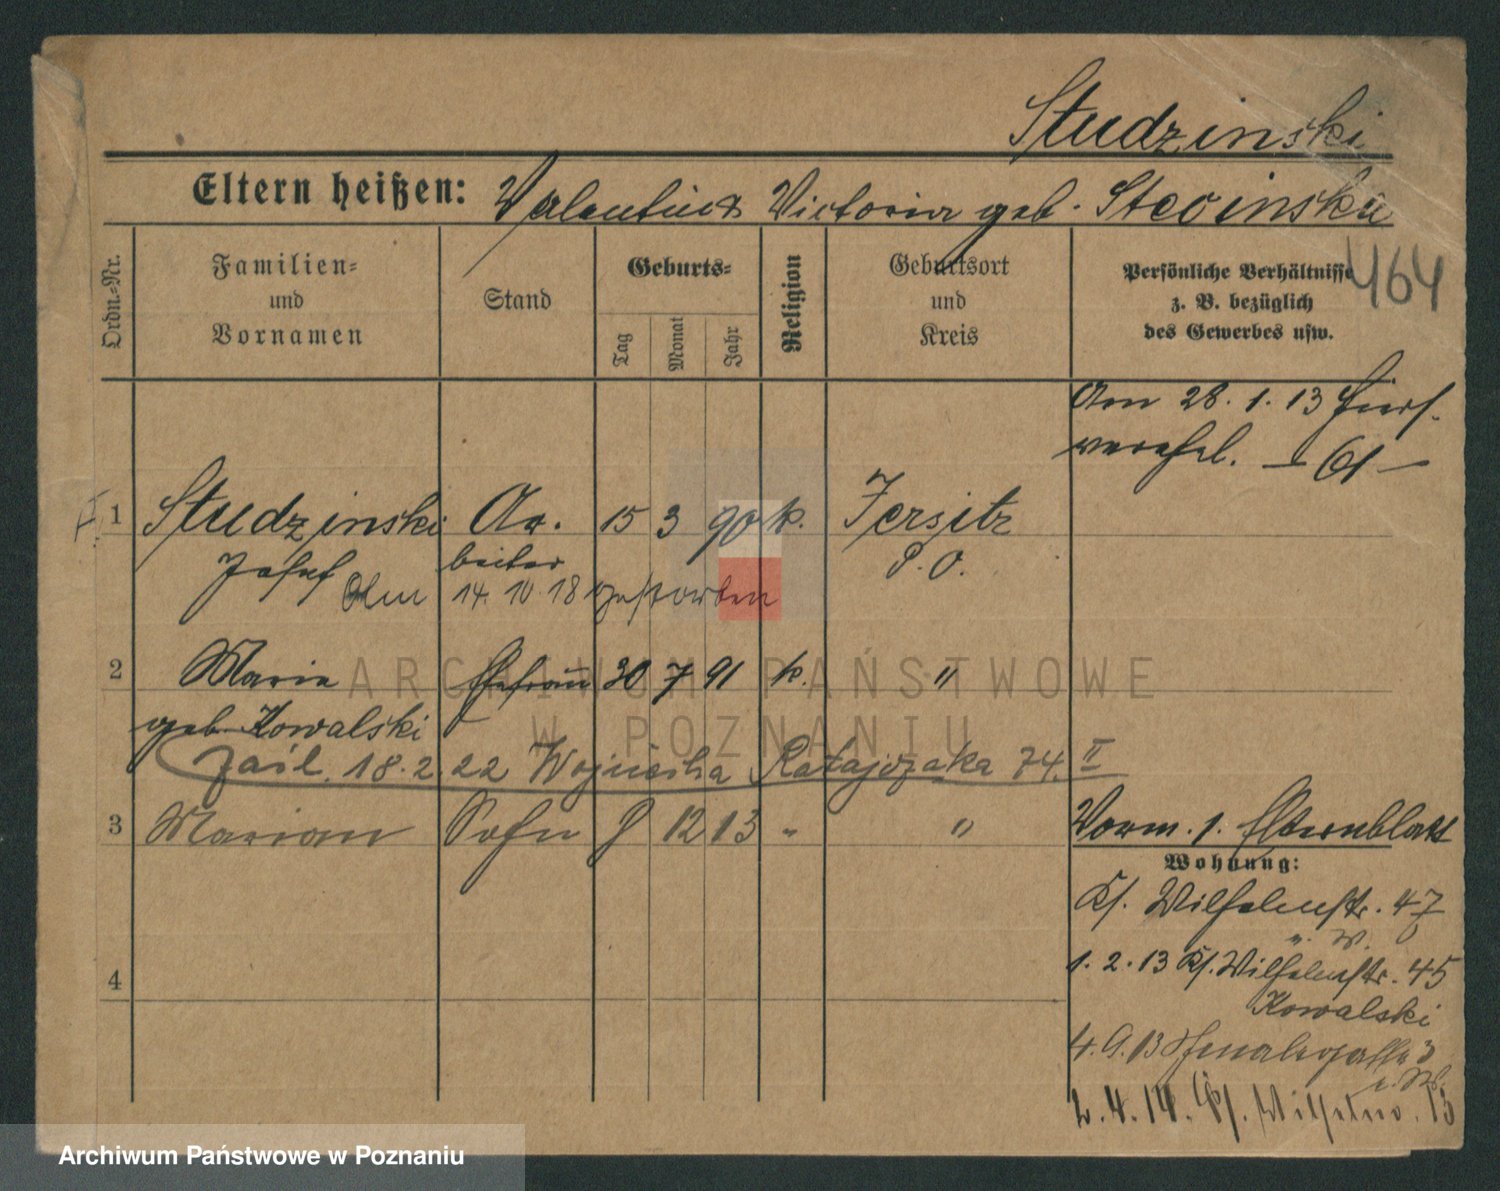 Studzinski
Eltern heißen: Valentin & Victoria geb. Stecinska
464
Ordn.-Nr.
Familien-
und
Vornamen
Stand
Geburts-
Tag
Monat
Jahr
Religion
Geburtsort
und
Kreis
Persönliche Verhältnisse
z. B. bezüglich
des Gewerbes usw.
Am 28. 1. 13 hier
verehel. — 61 —
1 Studzinski Ar. 15 3 90 k. Jersitz
Josef beiter P. O.
Am 14. 10. 18 gestorben
2 Marie Ehefrau 30 7 91 k. "
geb. Kowalski
Zaśl. 18. 2. 22 Wojciecha Ratajczaka 74. II
3 Marian Sohn 8 12 13 " "
Vorm. 1. Elternblatt
Wohnung:
Kl. Wilhelmstr. 47
1. 2. 13 Kl. Wilhelmstr. 45
Kowalski
4. 9. 13 3
2. 4. 14. Kl. Wilhelm. 13
4
ARCHIWUM PAŃSTWOWE
W POZNANIU
Archiwum Państwowe w Poznaniu